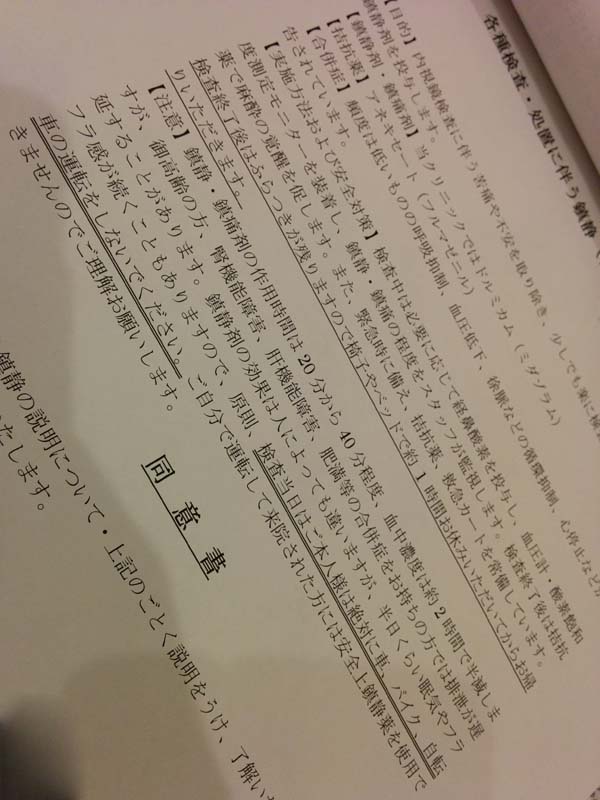 各種検査・処置に伴う鎮静
【目的】内視鏡検査に伴う苦痛や不安を取り除き、少しでも楽に検
鎮静剤を投与します。
【鎮静剤・鎮痛剤】当クリニックではドルミカム（ミダゾラム）
【拮抗薬】アネキセート（フルマゼニル）
【合併症】頻度は低いものの呼吸抑制、血圧低下、徐脈などの循環抑制、心停止などが
告されています。
【実施方法および安全対策】検査中は必要に応じて経鼻酸素を投与し、血圧計・酸素飽和
度測定モニターを装着し、鎮静・鎮痛の程度をスタッフが監視します。検査終了後は拮抗
薬で麻酔の覚醒を促します。また、緊急時に備え、拮抗薬、救急カートを常備しています。
検査終了後はふらつきが残りますので椅子やベッドで約1時間お休みいただいてからお帰
りいただきます。
【注意】鎮静・鎮痛剤の作用時間は20分から40分程度、血中濃度は約2時間で半減しま
すが、御高齢の方、腎機能障害、肝機能障害、肥満等の合併症をお持ちの方では排泄が遅
延することがあります。鎮静剤の効果は人によっても違いますが、半日くらい眠気やフラ
フラ感が続くこともありますので、原則、検査当日はご本人様は絶対に車、バイク、自転
車の運転をしないでください。ご自分で運転して来院された方には安全上鎮静薬を使用で
きませんのでご理解お願いします。
同意書
鎮静の説明について・上記のごとく説明をうけ、了解い
たします。